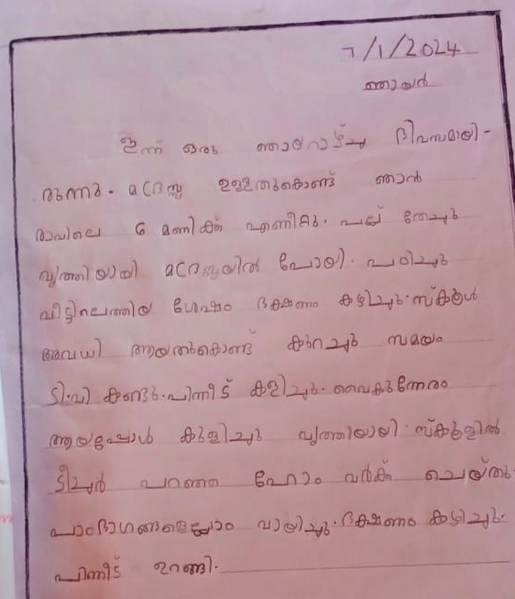 7/1/2024
ഞായർ
ഇന്ന് ഒരു ഞായറാഴ്ച്ച ദിവസമായി-
രുന്നു. മദ്രസ്സ ഉള്ളതുകൊണ്ട് ഞാൻ
രാവിലെ 6 മണിക്ക് എണീറ്റു. പല്ല് തേച്ചു
വൃത്തിയായി മദ്രസ്സയിൽ പോയി. പഠിച്ചു
വീട്ടിലെത്തിയ ശേഷം ഭക്ഷണം കഴിച്ചു. സ്കൂൾ
അവധി ആയതുകൊണ്ട് കുറച്ചു സമയം
ടി.വി കണ്ടു. പിന്നീട് കളിച്ചു. വൈകുന്നേരം
ആയപ്പോൾ കുളിച്ചു വൃത്തിയായി. സ്കൂളിൽ
ടീച്ചർ പറഞ്ഞ ഹോം വർക്ക് ചെയ്തു
പാഠഭാഗങ്ങളെല്ലാം വായിച്ചു. ഭക്ഷണം കഴിച്ചു.
പിന്നീട് ഉറങ്ങി.